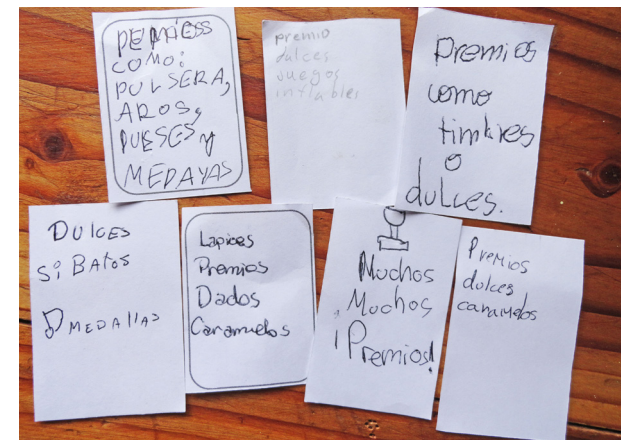 PEMIESS
COMO:
PULSERA,
AROS,
DULSES y
MEDAYAS
premio
dulces
Juegos
inflables
Premios
como
timbres
o
dulces.
DULCES
SiBATOS
MEDALLAS
Lapices
Premios
Dados
Caramuelos
Muchos
Muchos
¡Premios!
Premios
dulces
caramelos